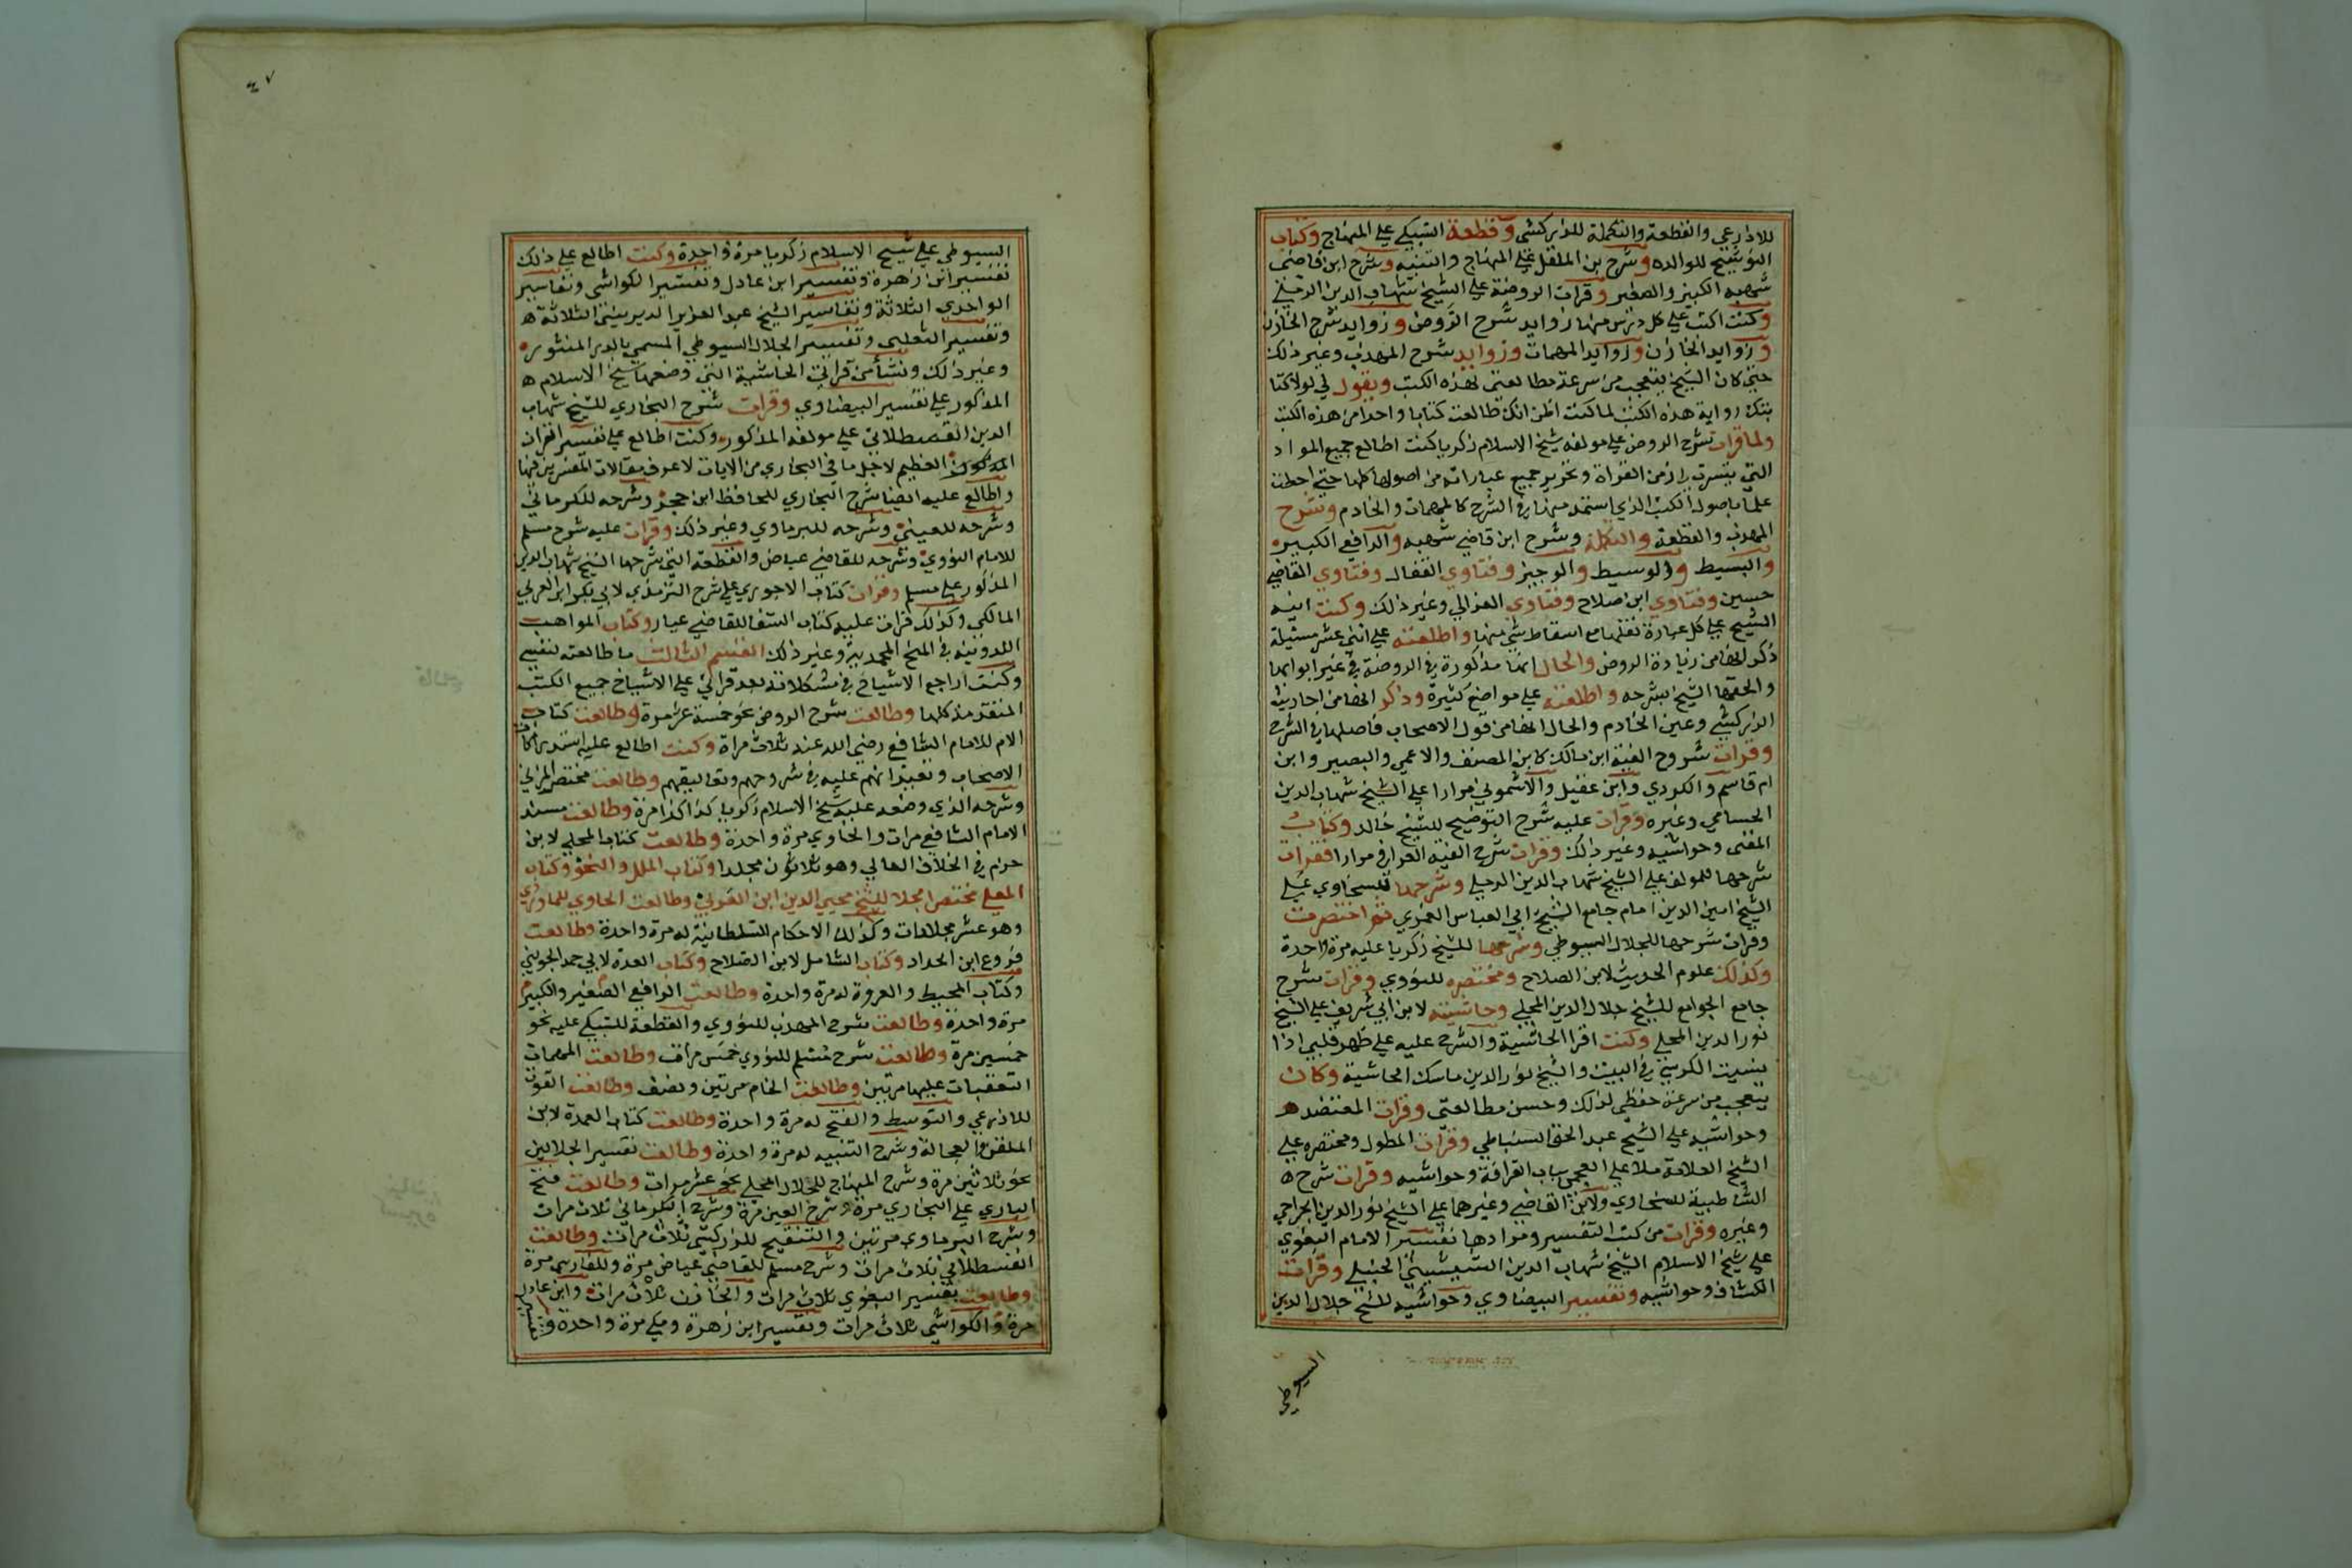 للاذرعي والقطعة والتكملة للزركشي وقطعة السبكي علي المنهاج وكتاب
التوشيح لولده وشرح بن الملقن علي المنهاج والتنبيه وشرح ابن قاضى
شهبه الكبير والصغير وقرات الروضة علي الشيخ شهاب الدين الرملي
وكنت اكتب علي كل درس منها زوايد شرح الروض وزوايد شرح الخازن
وزوايد الخازن وزوايد المهمات وزوايد شرح المهذب وغير ذلك
حتي كان الشيخ يتعجب من سرعة مطالعتى لهذه الكتب ويقول لي لولا كتا
بتك رواية هذه الكتب لما كنت اظن انك طالعت كتابا واحدا من هذه الكتب
ولما قرات شرح الروض علي مولفه شيخ الاسلام زكريا كنت اطالع جميع المواد
التي تيسرت زمن القراة وتحرير جميع عباراته من اصولها كلها حتي احطت
علما باصول الكتب الذي استمد منها في الشرح كالمهمات والخادم وشرح
المهذب والقطعة والتكملة وشرح ابن قاضي شهبه والرافعي الكبير
والبسيط والوسيط والوجيز وفتاوي القفال وفتاوي القاضي
حسين وفتاوي ابن صلاح وفتاوي الغزالي وغير ذلك وكنت انبه
الشيخ علي كل عبارة نقلها مع اسقاط شي منها واطلعته علي اثني عشر مسئلة
ذكر انها من زيادة الروض والحال انها مذكورة في الروضة في غير ابوابها
والحقها الشيخ بشرحه واطلعته علي مواضع كثيرة وذكر انها من ابحاث
الزركشي وعين الخادم والحال انها من قول الاصحاب فاصلها في الشرح
وقرات شروح الفية ابن مالك كابن المصنف والاعمي والبصير وابن
ام قاسم والكودي وابن عقيل والاشموني مرارا علي الشيخ شهاب الدين
الحسامي وغيره وقرات عليه شرح التوضيح للشيخ خالد وكتاب
المغنى وحواشيه وغير ذلك وقرات شرح الفية العراقي مرارا فقرات
شرحها للمولف علي الشيخ شهاب الدين الرملي وشرحها للسخاوي علي
الشيخ امين الدين امام جامع الشيخ ابي العباس الغمري ثم اختصرت
وقرات شرحها للجلال السيوطي وشرحها للشيخ زكريا عليه مرة واحدة
وكذلك علوم الحديث لابن الصلاح ومختصره للنووي وقرات شرح
جامع الجوامع للشيخ جلال الدين المحلي وحاشيته لابن ابي شريف علي الشيخ
نور الدين المحلي وكنت اقرا الحاشية والشرح عليه علي ظهر قلبي اذا
نسيت الكرسي في البيت والشيخ نور الدين ماسك الحاشية وكان
يتعجب من سرعة حفظي لذلك وحسن مطالعتى وقرات المعتضد
وحواشيه علي الشيخ عبد الحق السنباطي وقرات المطول ومختصره علي
الشيخ العلامة ملا علي العجمي بباب القرافة وحواشيه وقرات شرح
الشاطبية للسخاوي ولابن القاضي وغيرهما علي الشيخ نور الدين الجراحي
وغيره وقرات من كتب التفسير وموادها تفسير الامام البغوي
علي شيخ الاسلام الشيخ شهاب الدين الشيشيني الحنبلي وقرات
الكشاف وحواشيه وتفسير البيضاوي وحواشيه للشيخ جلال الدين
السيوطي
٤٧
السيوطي علي شيخ الاسلام زكريا مرة واحدة وكنت اطالع علي ذلك
تفسير ابن زهرة وتفسير ابن عادل وتفسير الكواشى وتفاسير
الواحدي الثلاثة وتفاسير الشيخ عبد العزيز الديرينى الثلاثة
وتفسير الثعلبى وتفسير الجلال السيوطي المسمي بالدر المنثور
وغير ذلك ونشأ من قراتي الحاشية التي وضعها شيخ الاسلام
المذكور علي تفسير البيضاوي وقرات شرح البخاري للشيخ شهاب
الدين القسطلاني علي مولفه المذكور وكنت اطالع علي تفسير القران
العظيم لاجل ما في البخاري من الايات لاعرف مقالات المفسرين فيها
واطالع عليه ايضا شرح البخاري للحافظ ابن حجر وشرحه للكرماني
وشرحه للعيني وشرحه للبرماوي وغير ذلك وقرات عليه شرح مسلم
للامام النووي وشرحه للقاضي عياض والقطعة التي شرحها الشيخ شهاب الدين
المذكور علي مسلم وقرات كتاب الاحوذي علي شرح الترمذي لابي بكر ابن العربي
المالكي وكذلك قرات عليه كتاب الشفا للقاضي عياض وكتاب المواهب
اللدونيه في المنح المحمدية وغير ذلك القسم الثالث ما طالعته لنفسي
وكنت اراجع الاشياخ في مشكلاته بعد قراتي علي الاشياخ جميع الكتب
المتقدمة كلها وطالعت شرح الروض نحو خمسة عشر مرة وطالعت كتاب
الام للامام الشافعي رضي الله عنه ثلاث مراة وكنت اطالع عليه استدراكات
الاصحاب وتعبيراتهم عليه في شروحهم وتعاليقهم وطالعت مختصر المزني
وشرحه الذي وضعه عليه شيخ الاسلام زكريا كذا كذا مرة وطالعت مسند
الامام الشافعي مرات والحاوي مرة واحدة وطالعت كتاب المحلي لابن
حزم في الخلاف العالي وهو ثلاثون مجلدا وكتاب الملل والنحل وكتاب
المعلي مختصر المحلا للشيخ محيي الدين ابن العربي وطالعت الحاوي للماوردي
وهو عشر مجلدات وكذلك الاحكام السلطانية له مرة واحدة وطالعت
فروع ابن الحداد وكتاب الشامل لابن الصلاح وكتاب العدة لابي محمد الجويني
وكتاب المحيط والعروة له مرة واحدة وطالعت الرافعي الصغير والكبير
مرة واحدة وطالعت شرح المهذب للنووي والقطعة للسبكي عليه نحو
خمسين مرة وطالعت شرح مسلم للنووي خمس مرات وطالعت المهمات
التعقبات عليها مرتين وطالعت الخام مرتين ونصف وطالعت القوت
للاذرعي والتوسط والفتح له مرة واحدة وطالعت كتاب العمدة لابن
الملقن والعجالة وشرح التنبيه له مرة واحدة وطالعت تفسير الجلالين
نحو ثلاثين مرة وشرح المنهاج للجلال المحلي نحو عشر مرات وطالعت فتح
الباري علي البخاري مرة وشرح العيني مرة وشرح الكرماني ثلاث مرات
وشرح البرماوي مرتين والتنقيح للزركشي ثلاث مرات وطالعت
القسطلاني ثلاث مرات وشرح مسلم للقاضي عياض مرة وللفارسي مرة
وطالعت تفسير البغوي ثلاث مرات والخازن ثلاث مرات وابن عادل
مرة والكواشي ثلاث مرات وتفسير ابن زهرة ومكي مرة واحدة و